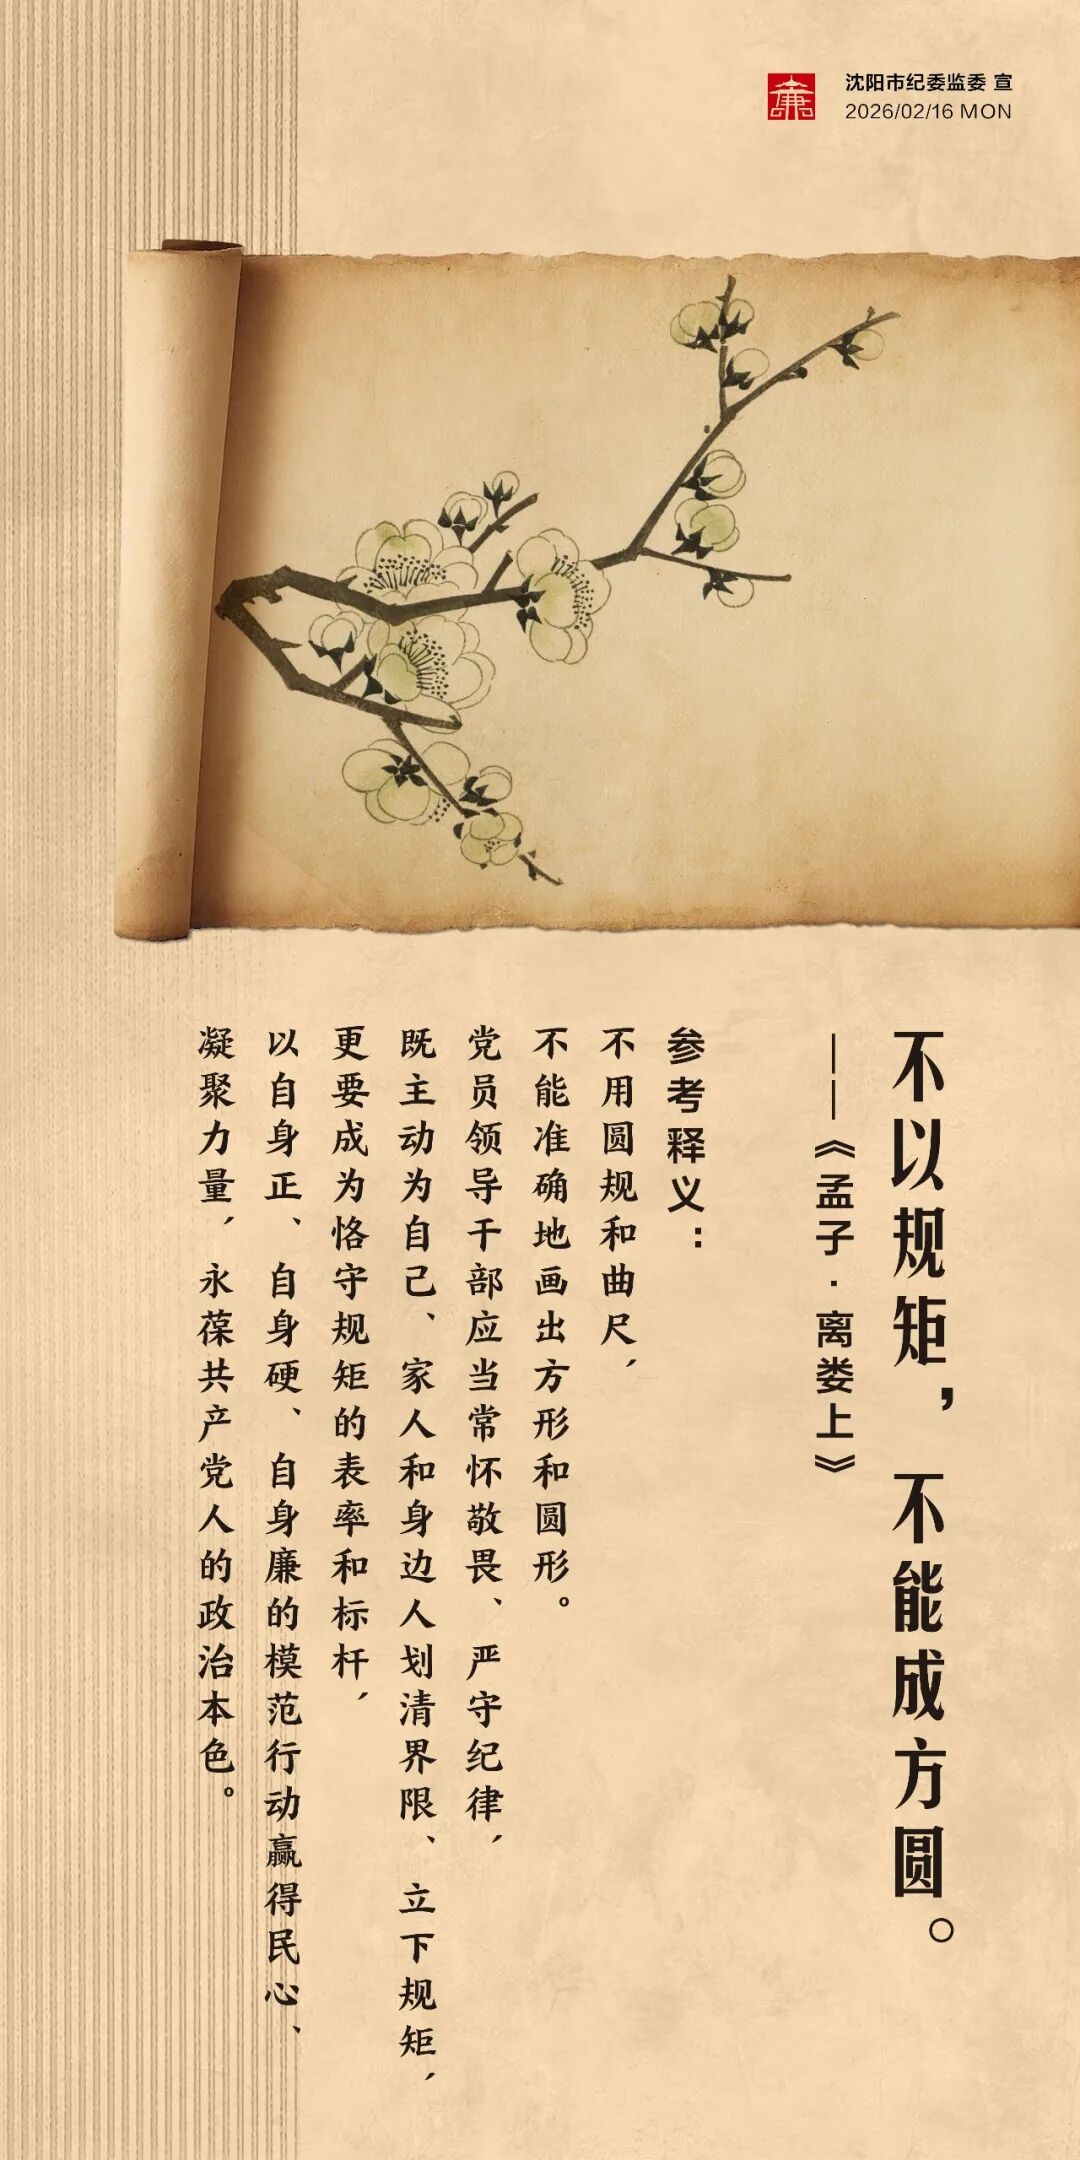 沈阳市纪委监委 宣
2026/02/16 MON
不以规矩，不能成方圆。
——《孟子·离娄上》
参考释义：
不用圆规和曲尺，
不能准确地画出方形和圆形。
党员领导干部应当常怀敬畏、严守纪律，
既主动为自己、家人和身边人划清界限、立下规矩，
更要成为恪守规矩的表率和标杆，
以自身正、自身硬、自身廉的模范行动赢得民心、
凝聚力量，永葆共产党人的政治本色。